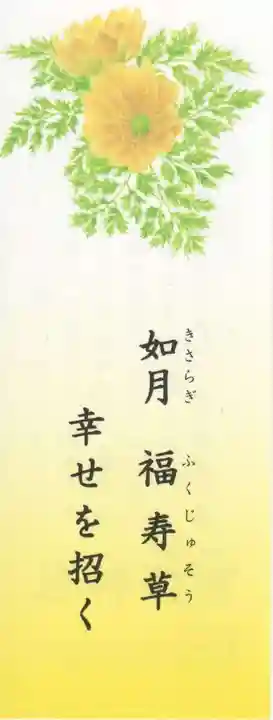 きさらぎ ふくじゅそう
如月 福寿草
幸せを招く